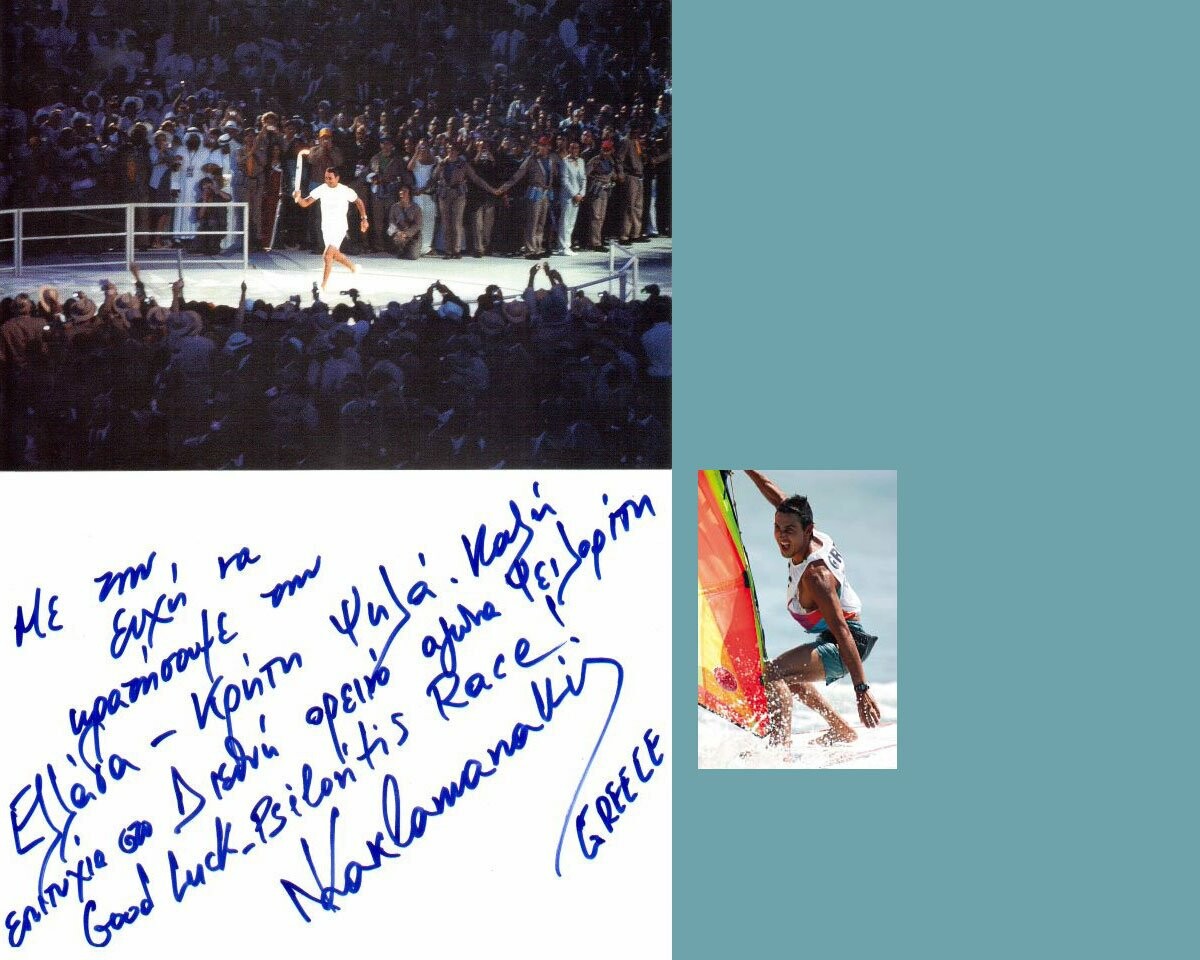 Με την
ευχή, να
κρατήσουμε την
Ελλάδα - Κρήτη Ψηλά. Καλή
επιτυχία στο Διεθνή ορεινό αγώνα Ψειλορίτη
Good Luck_Psiloritis Race!
NKaklamanakis
GREECE